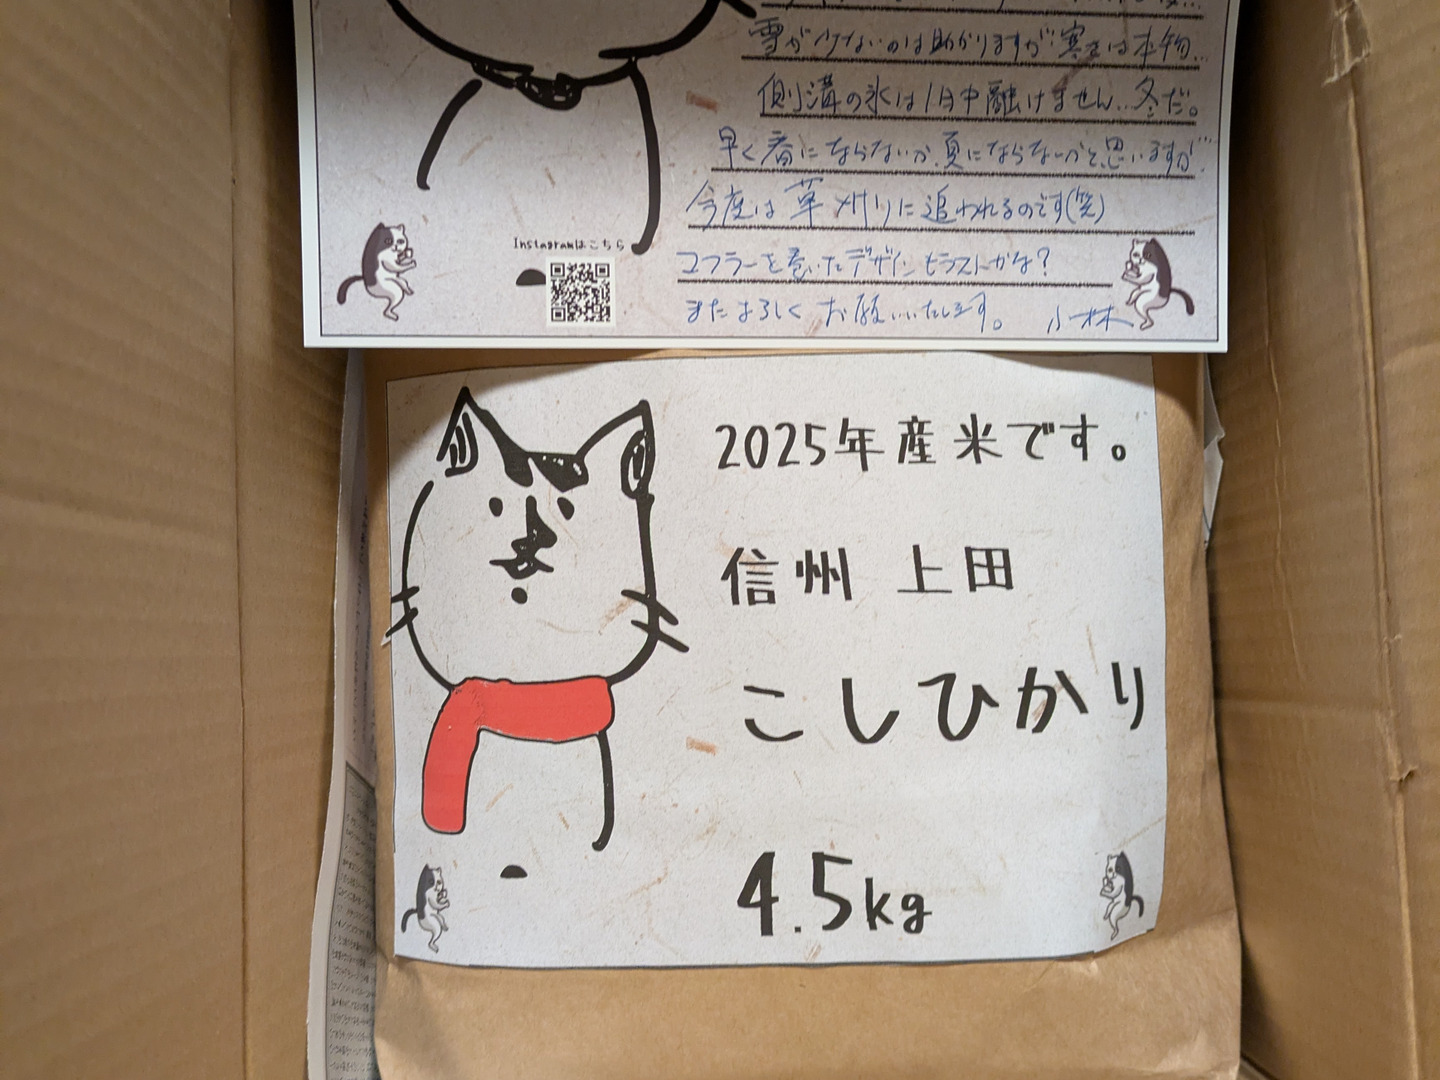 雪が少ないのは助かりますが寒さは本物…
側溝の氷は1日中融けません…冬だ。
早く春にならないか、夏にならないかと思いますが…
今度は草刈りに追われるのです(笑)
Instagramはこちら
マフラーを巻いたデザインもラストかな?
またよろしくお願いいたします。 小林
2025年産米です。
信州 上田
こしひかり
4.5kg